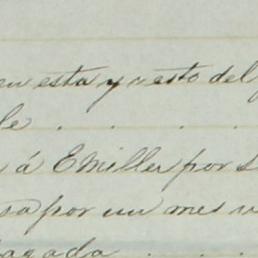 en esta y resto del
le . . . .
á E Miller por s
sa por un mes v
pagada . . . .